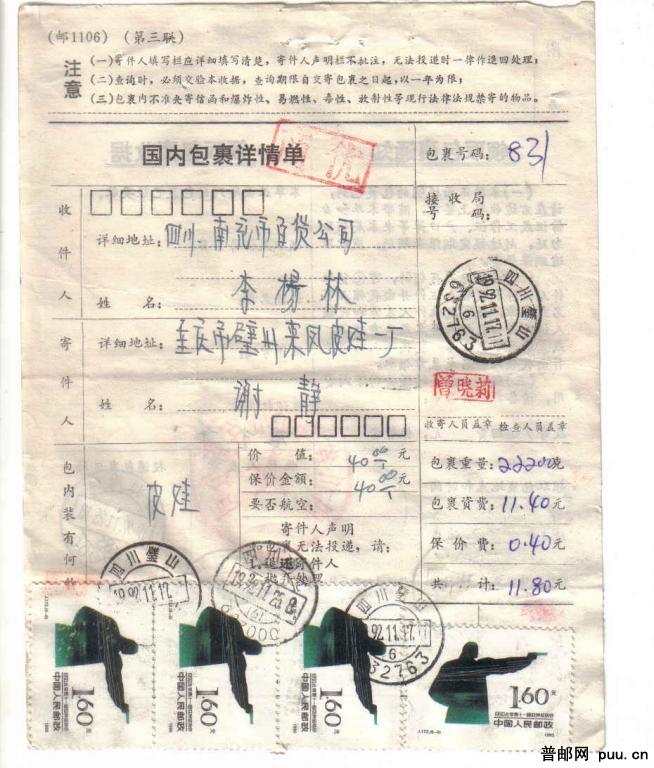 (邮1106) (第三联)
注意
(一)寄件人填写栏应详细填写清楚,寄件人声明栏不批注,无法投递时一律作退回处理;
(二)查询时,必须交验本收据,查询期限自交寄包裹之日起,以一年为限;
(三)包裹内不准夹寄信函和爆炸性、易燃性、毒性、放射性等现行法律法规禁寄的物品。
国内包裹详情单
包裹号码: 831
接收局号码:
收件人
详细地址: 四川南充市百货公司
姓名: 李杨林
四川璧山
1992.11.17.17
6
632763
寄件人
详细地址: 重庆市璧山来凤皮鞋一厂
姓名: 谢静
曾晓莉
收寄人员盖章 检查人员盖章
包内装有何
皮鞋
价值: 40 00 元
保价金额: 40 00 元
要否航空:
寄件人声明
如包裹无法投递,请:
1.退还寄件人
抛弃处理
包裹重量: 2220克
包裹资费: 11.40元
保价费: 0.40元
共计: 11.80元
四川璧山
92.11.17
四川璧山
92.11.17.17
6
632763
1.60元
中国人民邮政
1.60元
中国人民邮政
1.60元
中国人民邮政
1.60元
中国人民邮政
普邮网 puu.cn